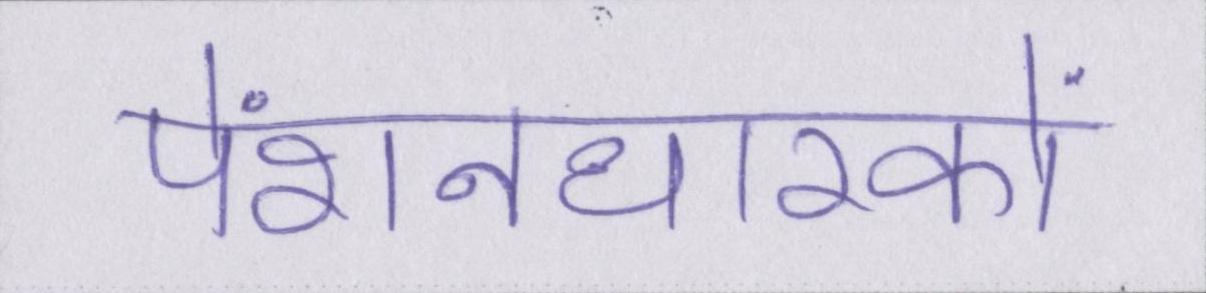 पेंशनधारकों